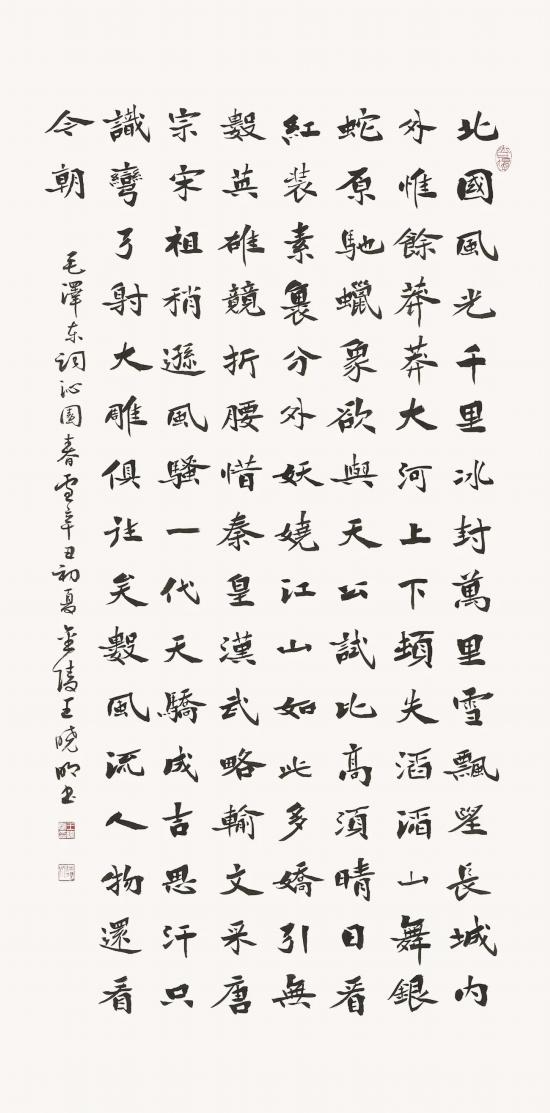 北國風光千里冰封萬里雪飄望長城內
外惟餘莽莽大河上下頓失滔滔山舞銀
蛇原馳蠟象欲與天公試比高須晴日看
紅装素裹分外妖嬈江山如此多嬌引無
數英雄競折腰惜秦皇漢武略輸文采唐
宗宋祖稍遜風騷一代天驕成吉思汗只
識彎弓射大雕俱往矣數風流人物還看
今朝
毛澤东词沁園春雪辛丑初夏金陵王晓明书